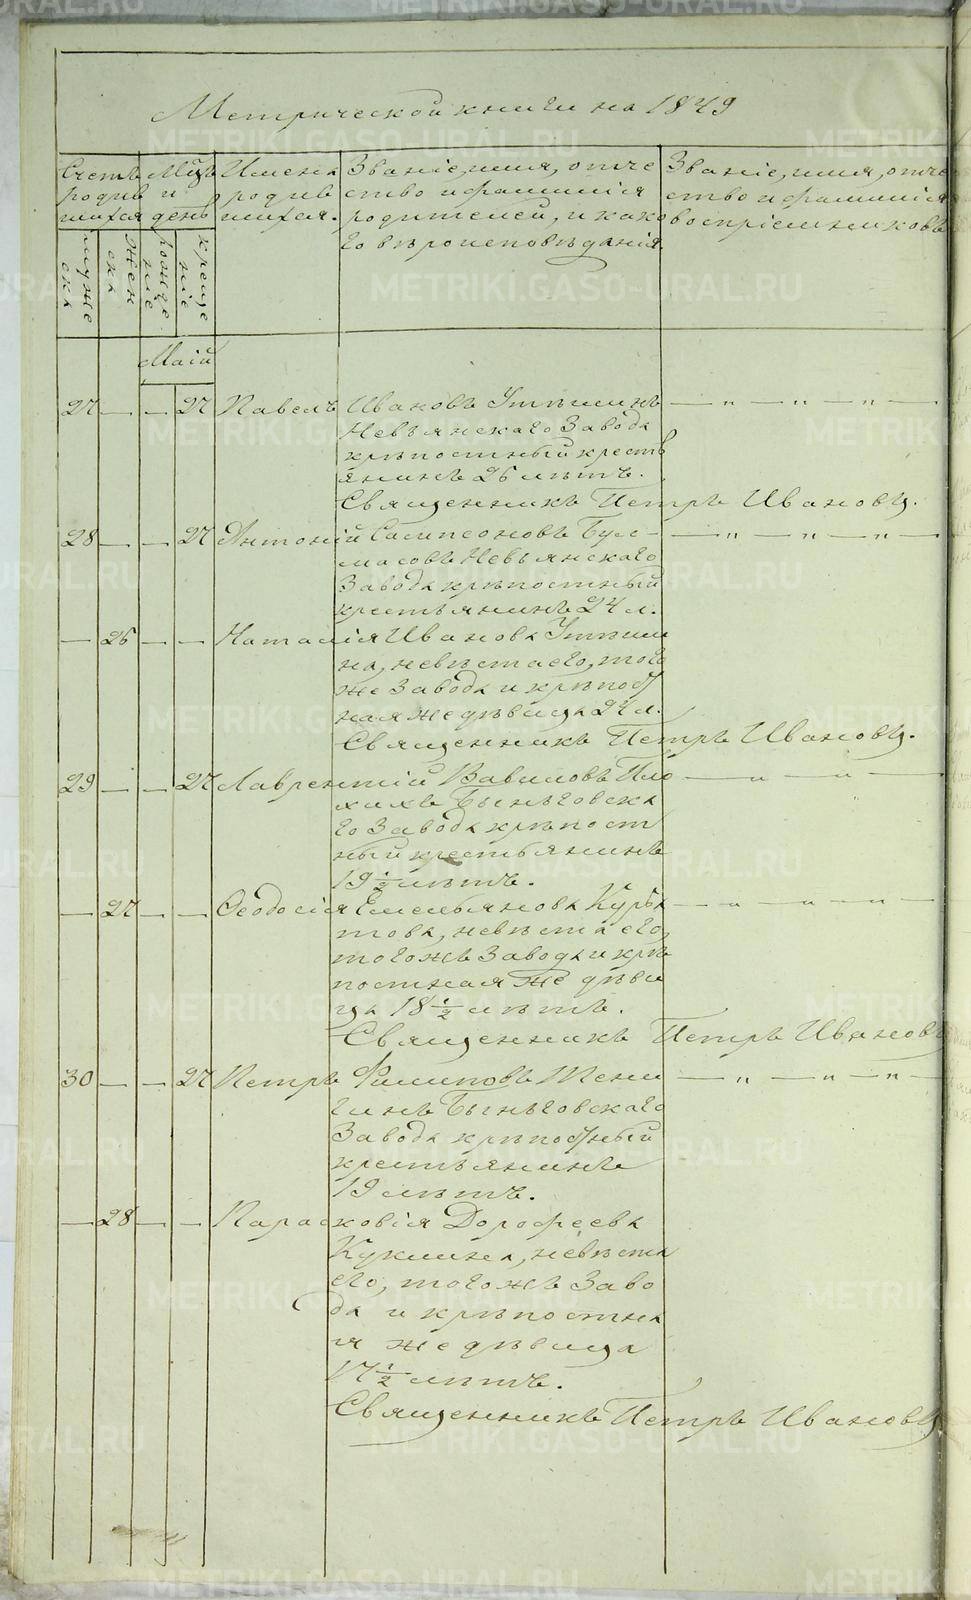 Метрической книги на 1849
Счетъ родив шихся
муже ска
Жен ска
Мѣсяцъ и день
рожде ніе
креще ніе
Имена родив шихся.
Званіе, имя, отче
ство и фамилія
родителей, и како
го вѣроисповѣданія.
Званіе, имя, отче
ство и фамилія
воспріемниковъ
Маій
27 — — 27 Павелъ Ивановъ Утѣшинъ — „ — „ — „ —
Невьянскаго Завода
крѣпостный кресть
янинъ 26 лѣтъ.
Священникъ Петръ Ивановъ.
28 — — 27 Антоній Сампсоновъ — „ „ — „ —
Невьянскаго
Завода крѣпостный
крестьянинъ 24 л.
— 26 — — Наталія Иванова Утѣши
на, невѣста его, того
же Завода и крѣпост
ная же дѣвица 24 л.
Священникъ Петръ Ивановъ.
29 — — 27 Лаврентій Вавиловъ Пло — „ — „ —
хихъ Быньговска
го Завода крѣпост
ный крестьянинъ
19 ½ лѣтъ.
— 27 — — Ѳеодосія Емельянова Курба — „ — „ — „ —
това, невѣста его,
того же Завода и крѣ
постная же дѣви
ца 18 ½ лѣтъ.
Священникъ Петръ Ивановъ
30 — — 27 Петръ Филиповъ — „ — „ — „ —
Быньговскаго
Завода крѣпостный
крестьянинъ
19 лѣтъ.
— 28 — — Парасковія Дорофеева
Кукшина, невѣста
его, того же Заво
да и крѣпостна
я же дѣвица
17 ½ лѣтъ.
Священникъ Петръ Ивановъ
METRIKI.GASO-URAL.RU